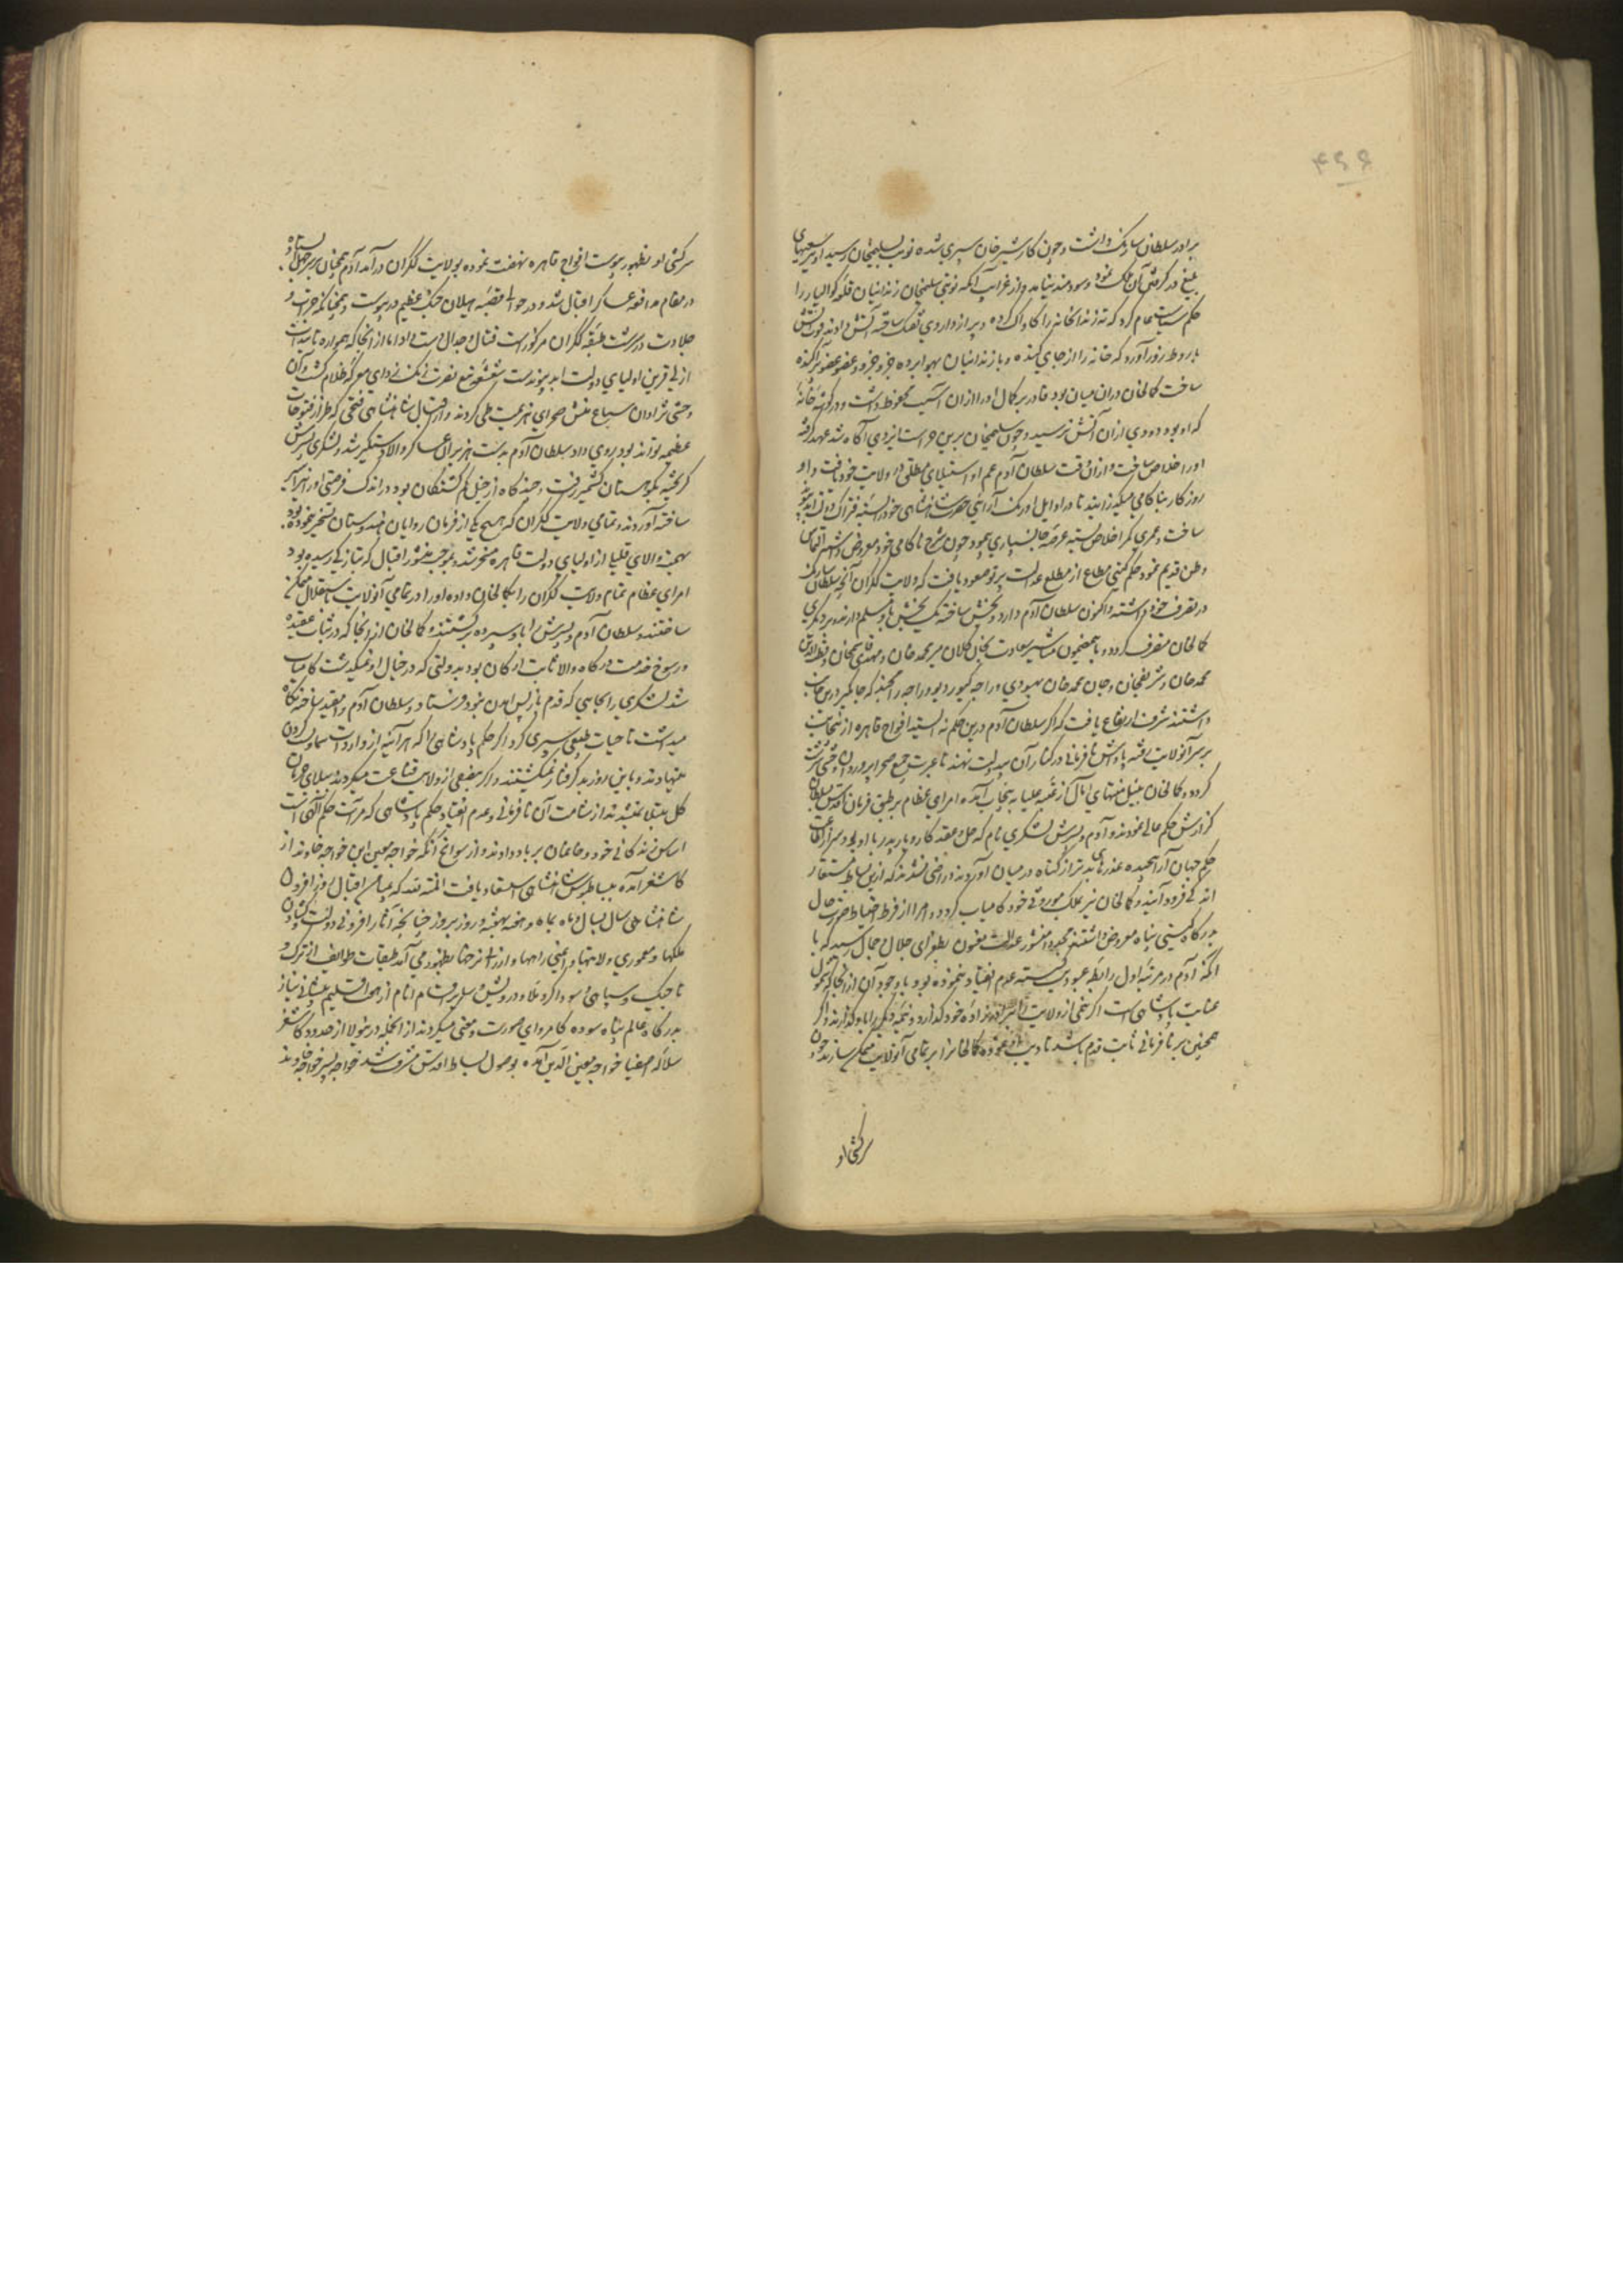 ۴۶۶
برادر سلطان سارنک داشت و چون کار شیر خان سپری شده نوبت بسلیمخان رسید او نیز سعیهای
بلیغ در گرفتن آن ملک نمود و سودمند نیامد و از غرایب آنکه نوبتی سلیمخان زندانیان قلعه کوالیار را
حکم سیاست عام کرد که ته زندانخانه را کاواک کرده و پر از داروی تفنک ساخته آتش دادند قوت آتش
باروط زور آورد که خانه را از جای کنده و با زندانیان بهوا برده جزو جزو و عضو عضو پراکنده
ساخت کمالخان در آن میان بود قادر بر کمال او را از آن آسیب محفوظ داشت و در گوشه خانهٔ
که او بود دودی از آن آتش نرسید و چون سلیمخان برین حراست ایزدی آگاه شد عهد گرفته
او را خلاص ساخت و از آن وقت سلطان آدم عم او استیلای مطلق در ولایت خود یافت و او
روزگار بناکامی میگذرانید تا در اوایل اورنک آرایی حضرت شاهنشاهی خود را بسته فتراک دولت ابد پیوند
ساخت و عمری کمر اخلاص بسته عرصه جانسپاری پیمود چون شرح ناکامی خود معروض داشته التماس
وطن قدیم نمود حکم گیتی مطاع از مطلع عدالت پرتو صعود یافت که ولایت ککران آنچه سلطان سارنک
در تصرف خود داشته و اکنون سلطان آدم دارد دو بخش ساخته یک بخش باو مسلم دارند و بر دیگری
کمالخان متصرف گردد و باینمضمون مناشیر سعادت بخان کلان میر محمد خان و مهدی قاسمخان و قطب الدین
محمد خان و شریفخان و جان محمد خان بهسودی و راجه کپور دیو و راجه رامچند که جایگیر درین جانب
داشتند شرف ارتفاع یافت که اگر سلطان آدم درین حکم نه ایستد افواج قاهره از پنجاب
بر سر آنولایت رفته پاداش نافرمانی در کنار آن بیدولت نهند تا عبرت جمیع صحرا پروردان وحشی سرشت
گردد و کمالخان بنیل منتهای آمال از عتبه علیا به پنجاب آمده امرای عظام بر طبق فرمان اقدس بسلطان
گزارش حکم عالی نمودند و آدم و پسرش لشکری نام که حل و عقد کار و بار پدر با او بود سر از اطاعت
حکم جهان آرا پیچیده عذرهای بدتر از گناه در میان آوردند و راضی نشدند که ازین بساط مستعار
اندکی فرود آیند و کمالخان نیز بملک موروثی خود کامیاب گردد و امرا از فرط احتیاط صورت حال
بدرگاه گیتی پناه معروض داشتند مجددا منشور عدالت مضمون بطغرای جلال و جمال رسید که با
آنکه آدم در مرتبه اول رابطه عبودیت گسسته عدم انقیاد نموده بود با وجود آن از آنجا که شمول
عنایت پادشاهی است اگر نیمی از ولایت را به برادر زاده خود گذارد و نیمه دیگر را باو گذارند و اگر
همچنین بر نافرمانی ثابت قدم باشد تادیب او نموده کمالخان را بر تمامی آنولایت متمکن سازند و چون
سرکشی او
سرکشی او بظهور پیوست افواج قاهره نهضت نموده بولایت ککران در آمد آدم همچنان بر سر جهل ایستاده
در مقام مدافعه عساکر اقبال شد و در حوالی قصبه هیلان جنک عظیم در پیوست و چنانکه جرات و
جلادت در سرشت طبقه ککران مرکوز است قتال و جدال دست داد اما از آنجا که همواره تاییدات
ازلی قرین اولیای دولت ابد پیوندست شعشعه تیغ نصرت زنک زدای معرکه ظلام گشت و آن
وحشی نژادان سباع منش صحرای هزیمت طی کردند و از اقبال شاهنشاهی فتحی که طراز فتوحات
عظیمه تواند بود روی داد سلطان آدم بدست هزبران عساکر والا دستگیر شد و لشکری پسرش
گریخته بکوهستان کشمیر رفت و چند گاه از خیل گم گشتگان بود در اندک فرصتی او را نیز اسیر
ساخته آوردند و تمامی ولایت ککران که هیچ یکی از فرمان روایان هندوستان تسخیر ننموده بود
بهمت والای قلیلی از اولیای دولت قاهره مسخر شد و بموجب منشور اقبال که بتازگی رسیده بود
امرای عظام تمام ولایت ککران را بکمالخان داده او را در تمامی آنولایت باستقلال متمکن
ساختند و سلطان آدم و پسرش را باو سپرده برگشتند و کمالخان از آنجا که در ثبات عقیده
و رسوخ خدمت درگاه والا ثابت ارکان بود بدولتی که در خیال او نمیگذشت کامیاب
شد لشکری را بجایی که قدم باز پس آمدن نبود فرستاد و سلطان آدم را مقید ساخته نگاه
میداشت تا حیات طبعی سپری کرد اگر حکم پادشاهی را که هر آئینه از واردات سماویست گردن
مینهادند و باین روز بد گرفتار نمیگشتند و اگر ببعضی از ولایت قناعت میکردند ببلای حرمان
کل مبتلا نمیشدند از شامت آن نافرمانی و عدم انقیاد حکم پادشاهی که مرآت حکم الهی است
اساس زندگانی خود و خانمان بر باد دادند و از سوانح آنکه خواجه معین ابن خواجه خاوند از
کاشغر آمده ببساط بوس شاهنشاهی استسعاد یافت المنه لله که بمیامن اقبال روز افزون
شاهنشاهی سال بسال و ماه بماه و هفته بهفته و روز بروز چنانچه آثار افزونی دولت و گشادن
ملکها و معموری ولایتها و ایمنی راهها و ارزانی نرخها بظهور می آمد طبقات طوایف از ترک و
تاجیک و سپاهی و سوداگر و ملا و درویش و سایر اقسام انام از هفت اقلیم پیشانی نیاز
بدرگاه عالم پناه سوده کامروای صورت و معنی میگردند از انجمله درینولا از حدود کاشغر
سلاله اصفیا خواجه معین الدین آمده بوصول بساط اقدس مشرف شد خواجه پسر خواجه خاوند